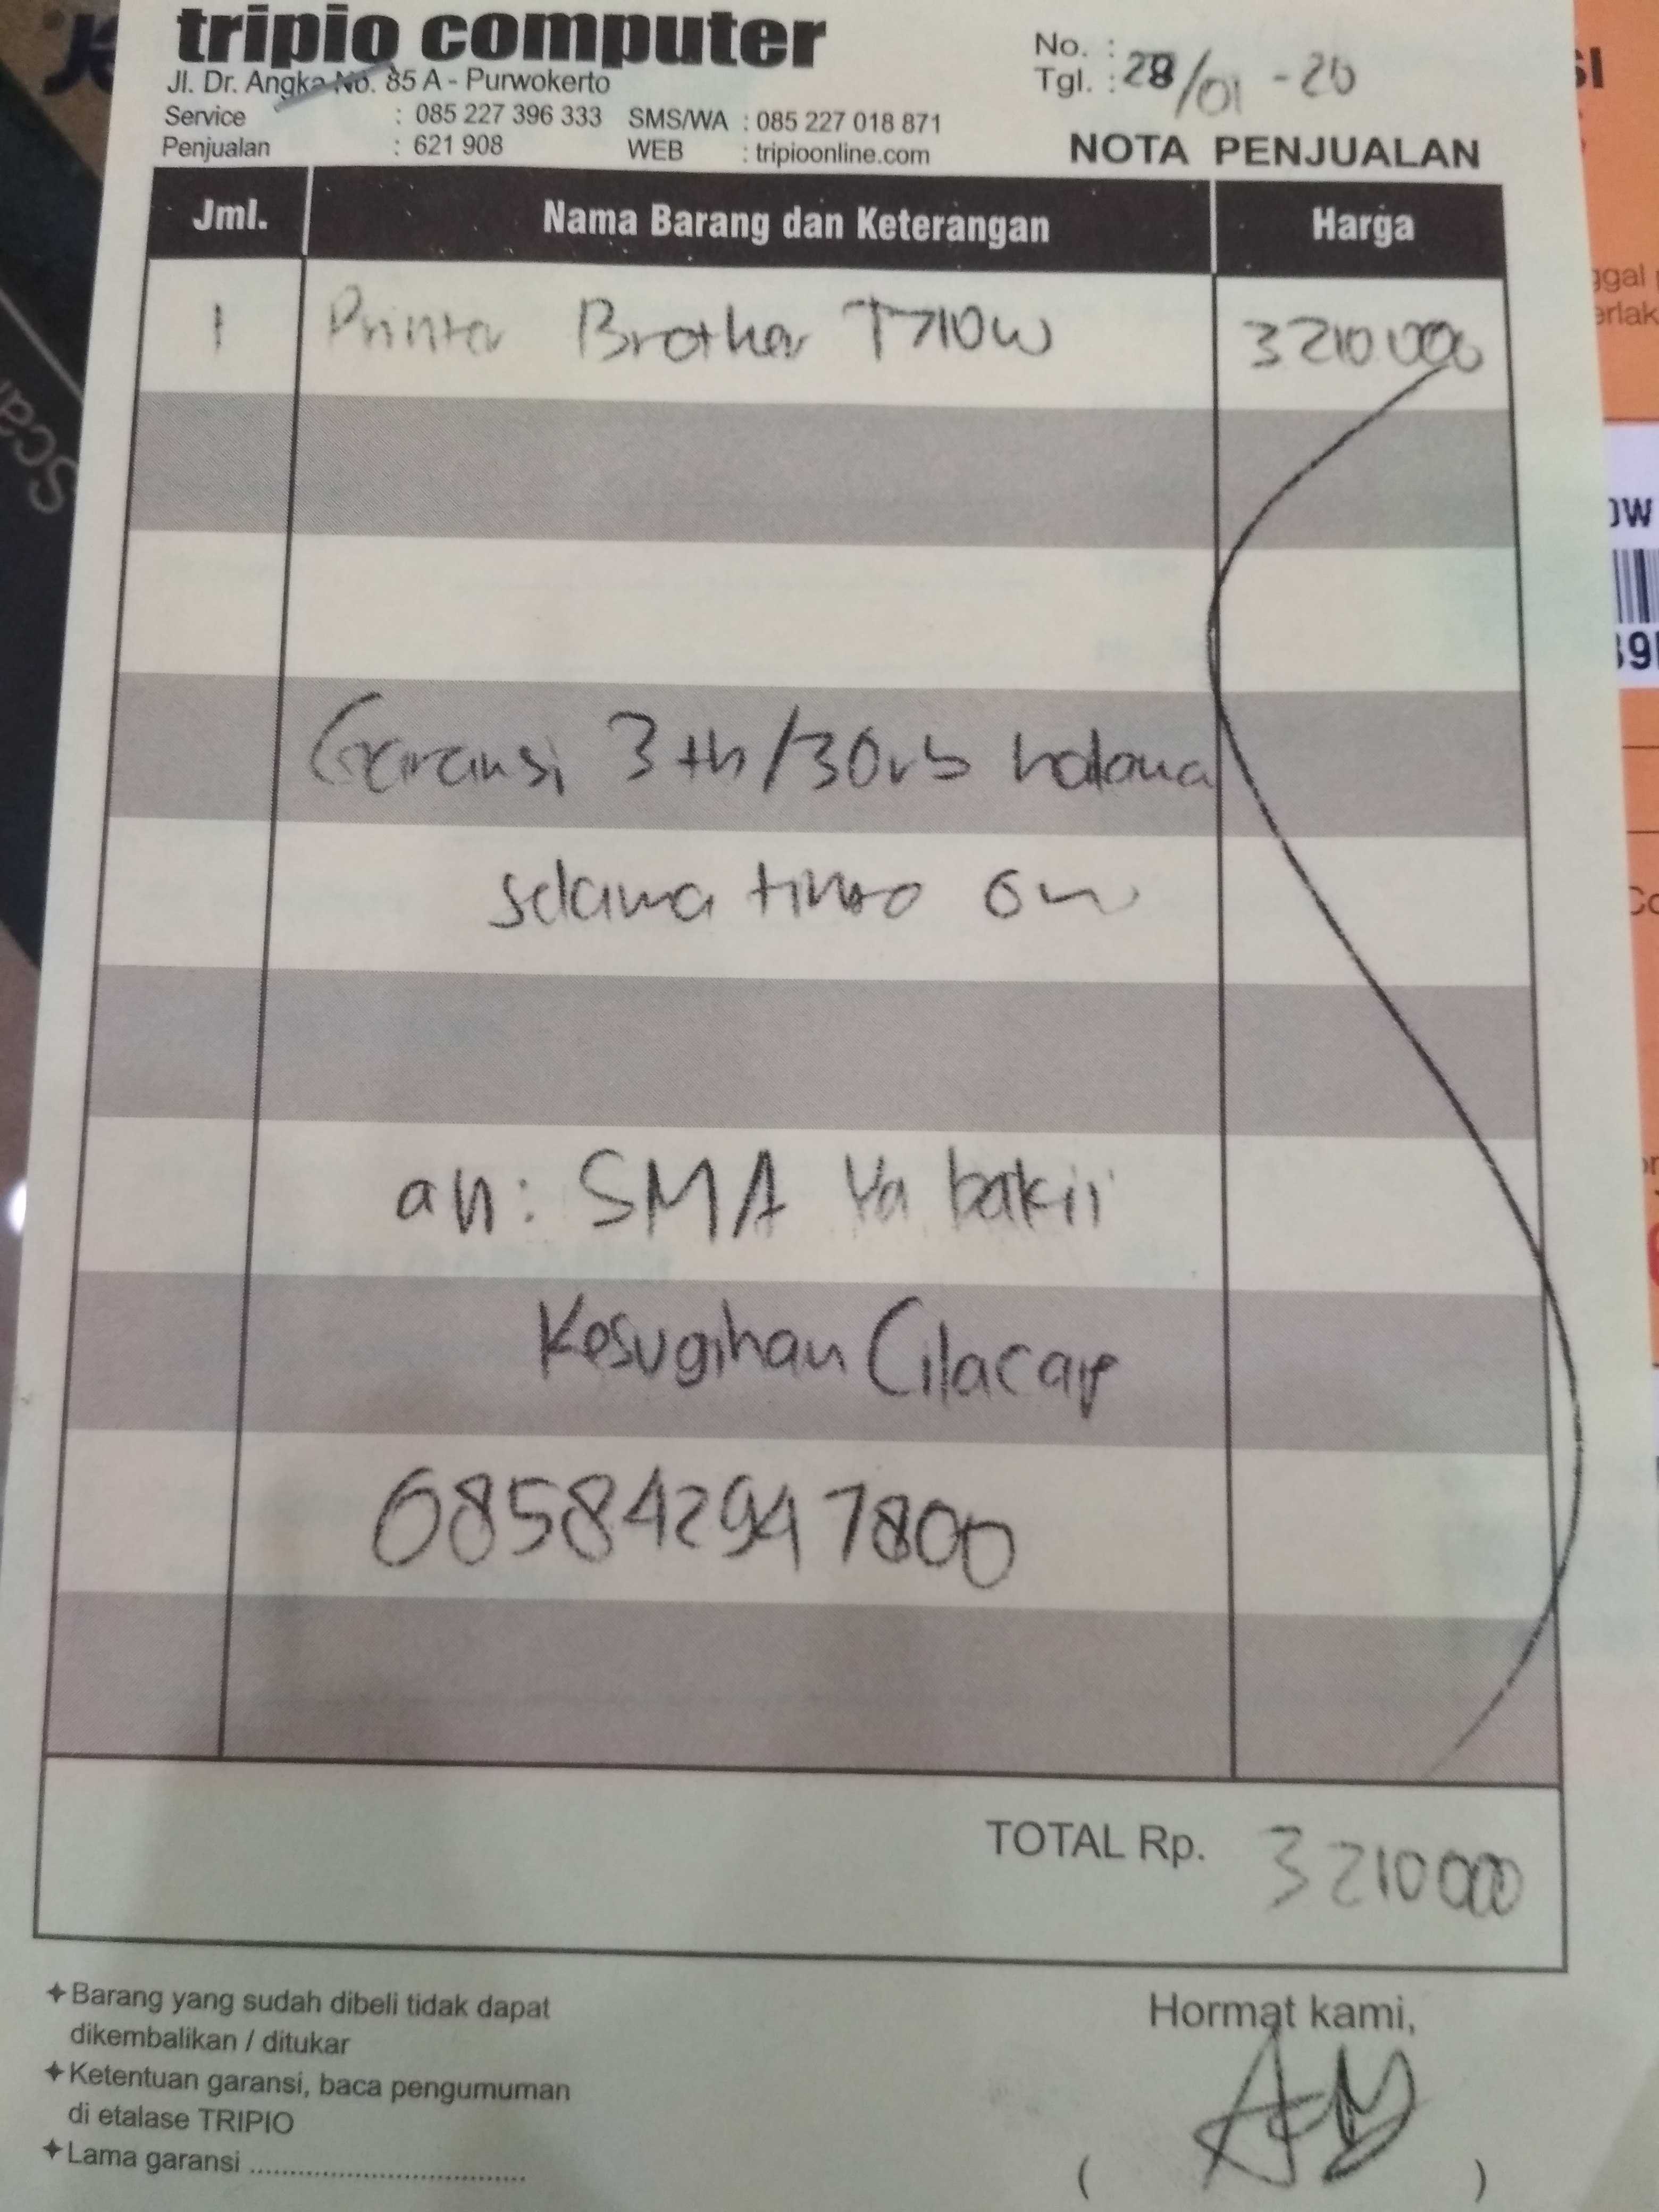 tripio computer
Jl. Dr. Angka No. 85 A - Purwokerto
Service : 085 227 396 333 SMS/WA : 085 227 018 871
Penjualan : 621 908 WEB : tripioonline.com
No. :
Tgl. : 28/01 - 20
NOTA PENJUALAN
Jml. Nama Barang dan Keterangan Harga
1 Printer Brother T710W 3210.000
Garansi 3 th/30rb halaman
selama tinta ori
an: SMA Ya bakii
Kesugihan Cilacap
085842947800
TOTAL Rp. 3210000
Barang yang sudah dibeli tidak dapat
dikembalikan / ditukar
Ketentuan garansi, baca pengumuman
di etalase TRIPIO
Lama garansi ........................
Hormat kami,
( )
SI
ggal
erlak
OW
Scan